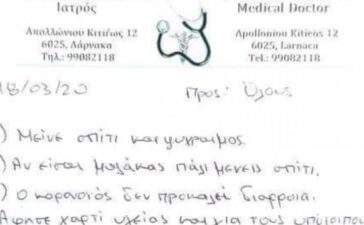 Ιατρός
Medical Doctor
Απολλώνιου Κιτιέως 12
Apolloniou Kitieos 12
6025, Λάρνακα
6025, Larnaca
Τηλ.: 99082118
Tel.: 99082118
18/03/20
Προς: Όλους
) Μείνε σπίτι και ψύχραιμος.
) Αν είσαι μαλάκας πάλι μένεις σπίτι.
) Ο κορονοϊός δεν προκαλεί διάρροια.
Αφήστε χαρτί υγείας και για τους υπόλοιπου